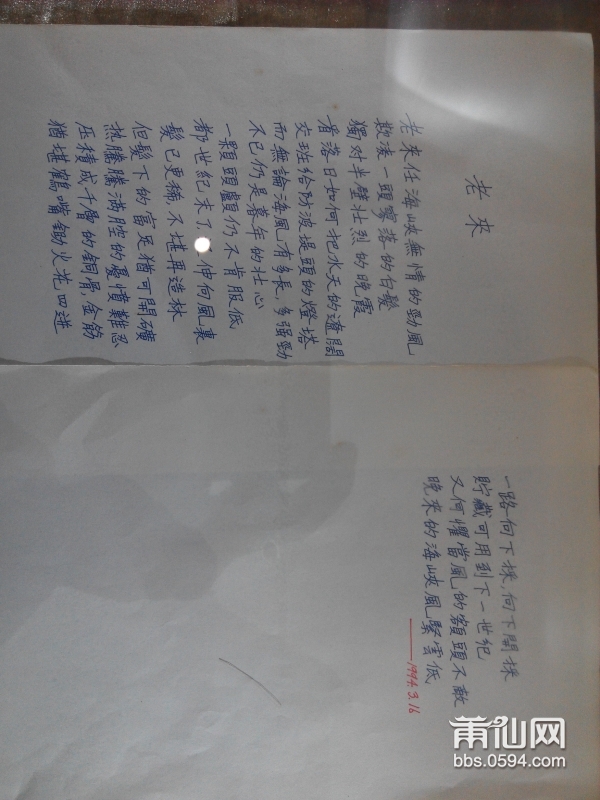 老來
老來任海峽無情的勁風
欺凌一頭寥落的白髮
獨對半壁壯烈的晚霞
看落日如何把水天的遼闊
交班給防波堤頭的燈塔
而無論海風有多長,多強勁
不已仍是暮年的壯心
一顆頭顱仍不肯服低
都世紀末了 伸向風裏
髮已更稀,不堪再造林
但髮下的富足猶可開礦
热騰騰滿腔的憂憤難忘
压積成千層的銅骨,金筋
猶堪鶴嘴鋤火光四迸
一路向下採,向下開採
貯藏可用到下一世紀
又何懼當風的額頭不敵
晚來的海峽風緊雲低
——1994.3.16
莆仙网
bbs.0594.com